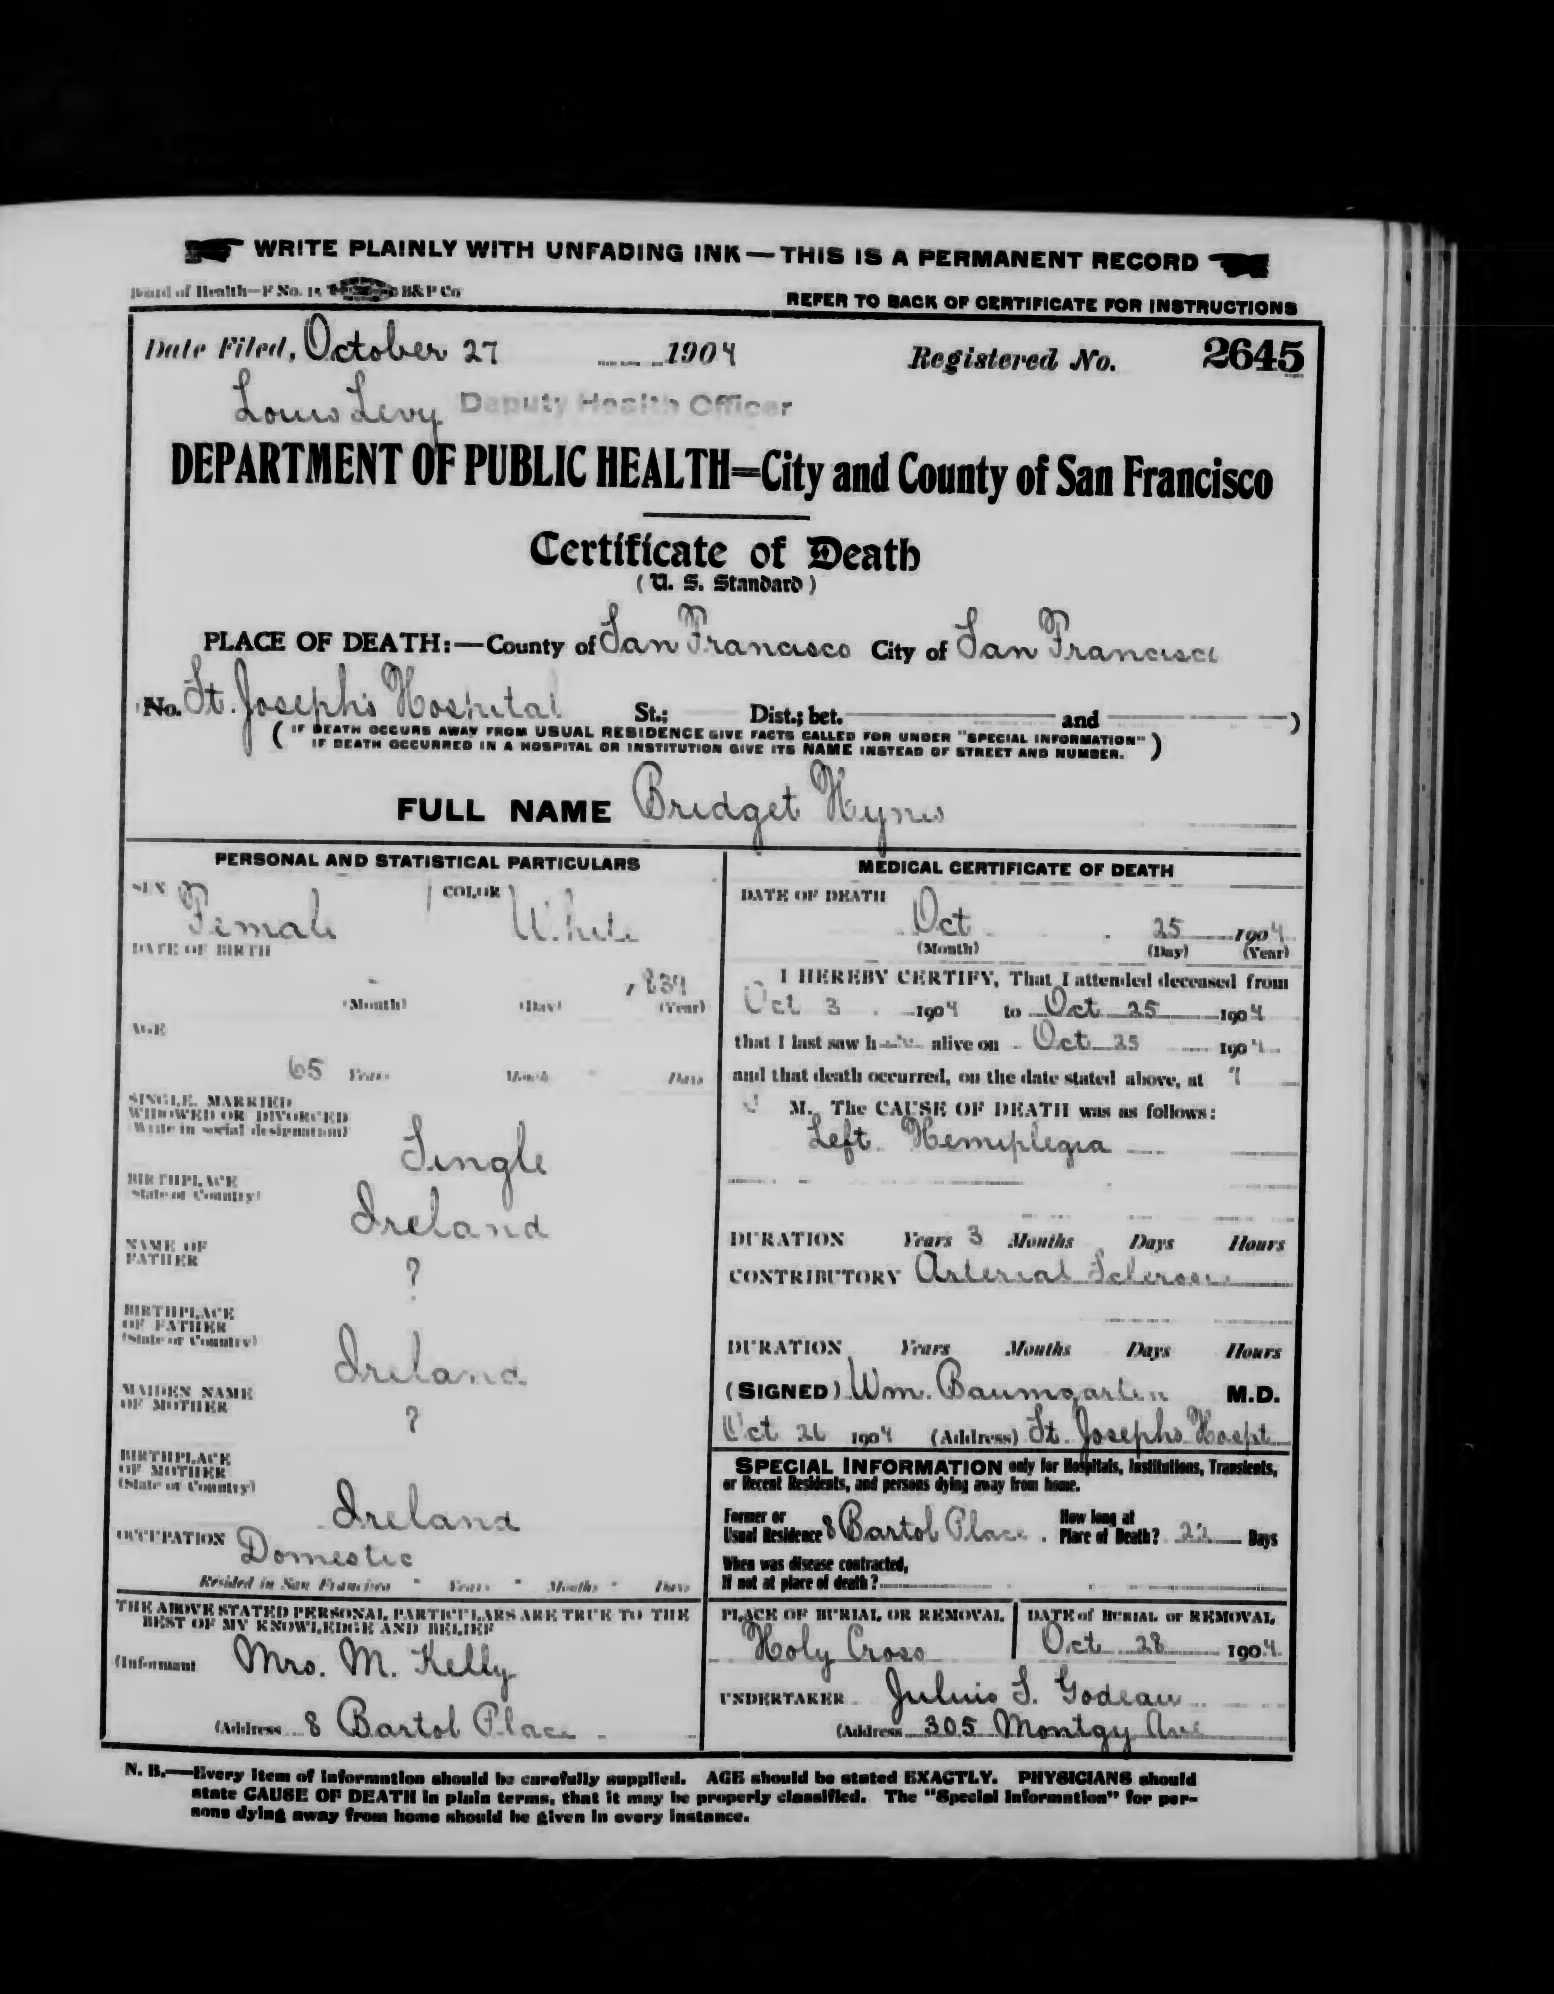 WRITE PLAINLY WITH UNFADING INK—THIS IS A PERMANENT RECORD
Board of Health—F No. 15 B&P Co
REFER TO BACK OF CERTIFICATE FOR INSTRUCTIONS
Date Filed, October 27 1904 Registered No. 2645
Louis Levy Deputy Health Officer
DEPARTMENT OF PUBLIC HEALTH=City and County of San Francisco
Certificate of Death
(U. S. Standard)
PLACE OF DEATH:—County of San Francisco City of San Francisco
No. St. Joseph's Hospital St.; Dist.; bet. and )
( IF DEATH OCCURS AWAY FROM USUAL RESIDENCE GIVE FACTS CALLED FOR UNDER "SPECIAL INFORMATION"
IF DEATH OCCURRED IN A HOSPITAL OR INSTITUTION GIVE ITS NAME INSTEAD OF STREET AND NUMBER. )
FULL NAME Bridget Hynes
PERSONAL AND STATISTICAL PARTICULARS
SEX Female COLOR White
DATE OF BIRTH
1839
(Month) (Day) (Year)
AGE
65 Years Months Days
SINGLE, MARRIED
WIDOWED OR DIVORCED
(Write in social designation)
Single
BIRTHPLACE
(State or Country)
Ireland
NAME OF
FATHER
?
BIRTHPLACE
OF FATHER
(State or Country)
Ireland
MAIDEN NAME
OF MOTHER
?
BIRTHPLACE
OF MOTHER
(State or Country)
Ireland
OCCUPATION Domestic
Resided in San Francisco Years Months Days
THE ABOVE STATED PERSONAL PARTICULARS ARE TRUE TO THE
BEST OF MY KNOWLEDGE AND BELIEF
(Informant Mrs. M. Kelly
(Address 8 Bartol Place
MEDICAL CERTIFICATE OF DEATH
DATE OF DEATH
Oct 25 1904
(Month) (Day) (Year)
I HEREBY CERTIFY, That I attended deceased from
Oct 3 1904 to Oct 25 1904
that I last saw h alive on Oct 25 1904
and that death occurred, on the date stated above, at
M. The CAUSE OF DEATH was as follows:
Left Hemiplegia
DURATION Years 3 Months Days Hours
CONTRIBUTORY Arterial Sclerosis
DURATION Years Months Days Hours
(SIGNED) Wm. Baumgarten M.D.
Oct 26 1904 (Address) St. Josephs Hospt
SPECIAL INFORMATION only for Hospitals, Institutions, Transients,
or Recent Residents, and persons dying away from home.
Former or
Usual Residence 8 Bartol Place
How long at
Place of Death? 22 Days
When was disease contracted,
If not at place of death?
PLACE OF BURIAL OR REMOVAL
Holy Cross
DATE of BURIAL or REMOVAL
Oct 28 1904
UNDERTAKER Julius S. Godeau
(Address 305 Montgy Ave
N. B.—Every item of information should be carefully supplied. AGE should be stated EXACTLY. PHYSICIANS should
state CAUSE OF DEATH in plain terms, that it may be properly classified. The "Special Information" for per-
sons dying away from home should be given in every instance.